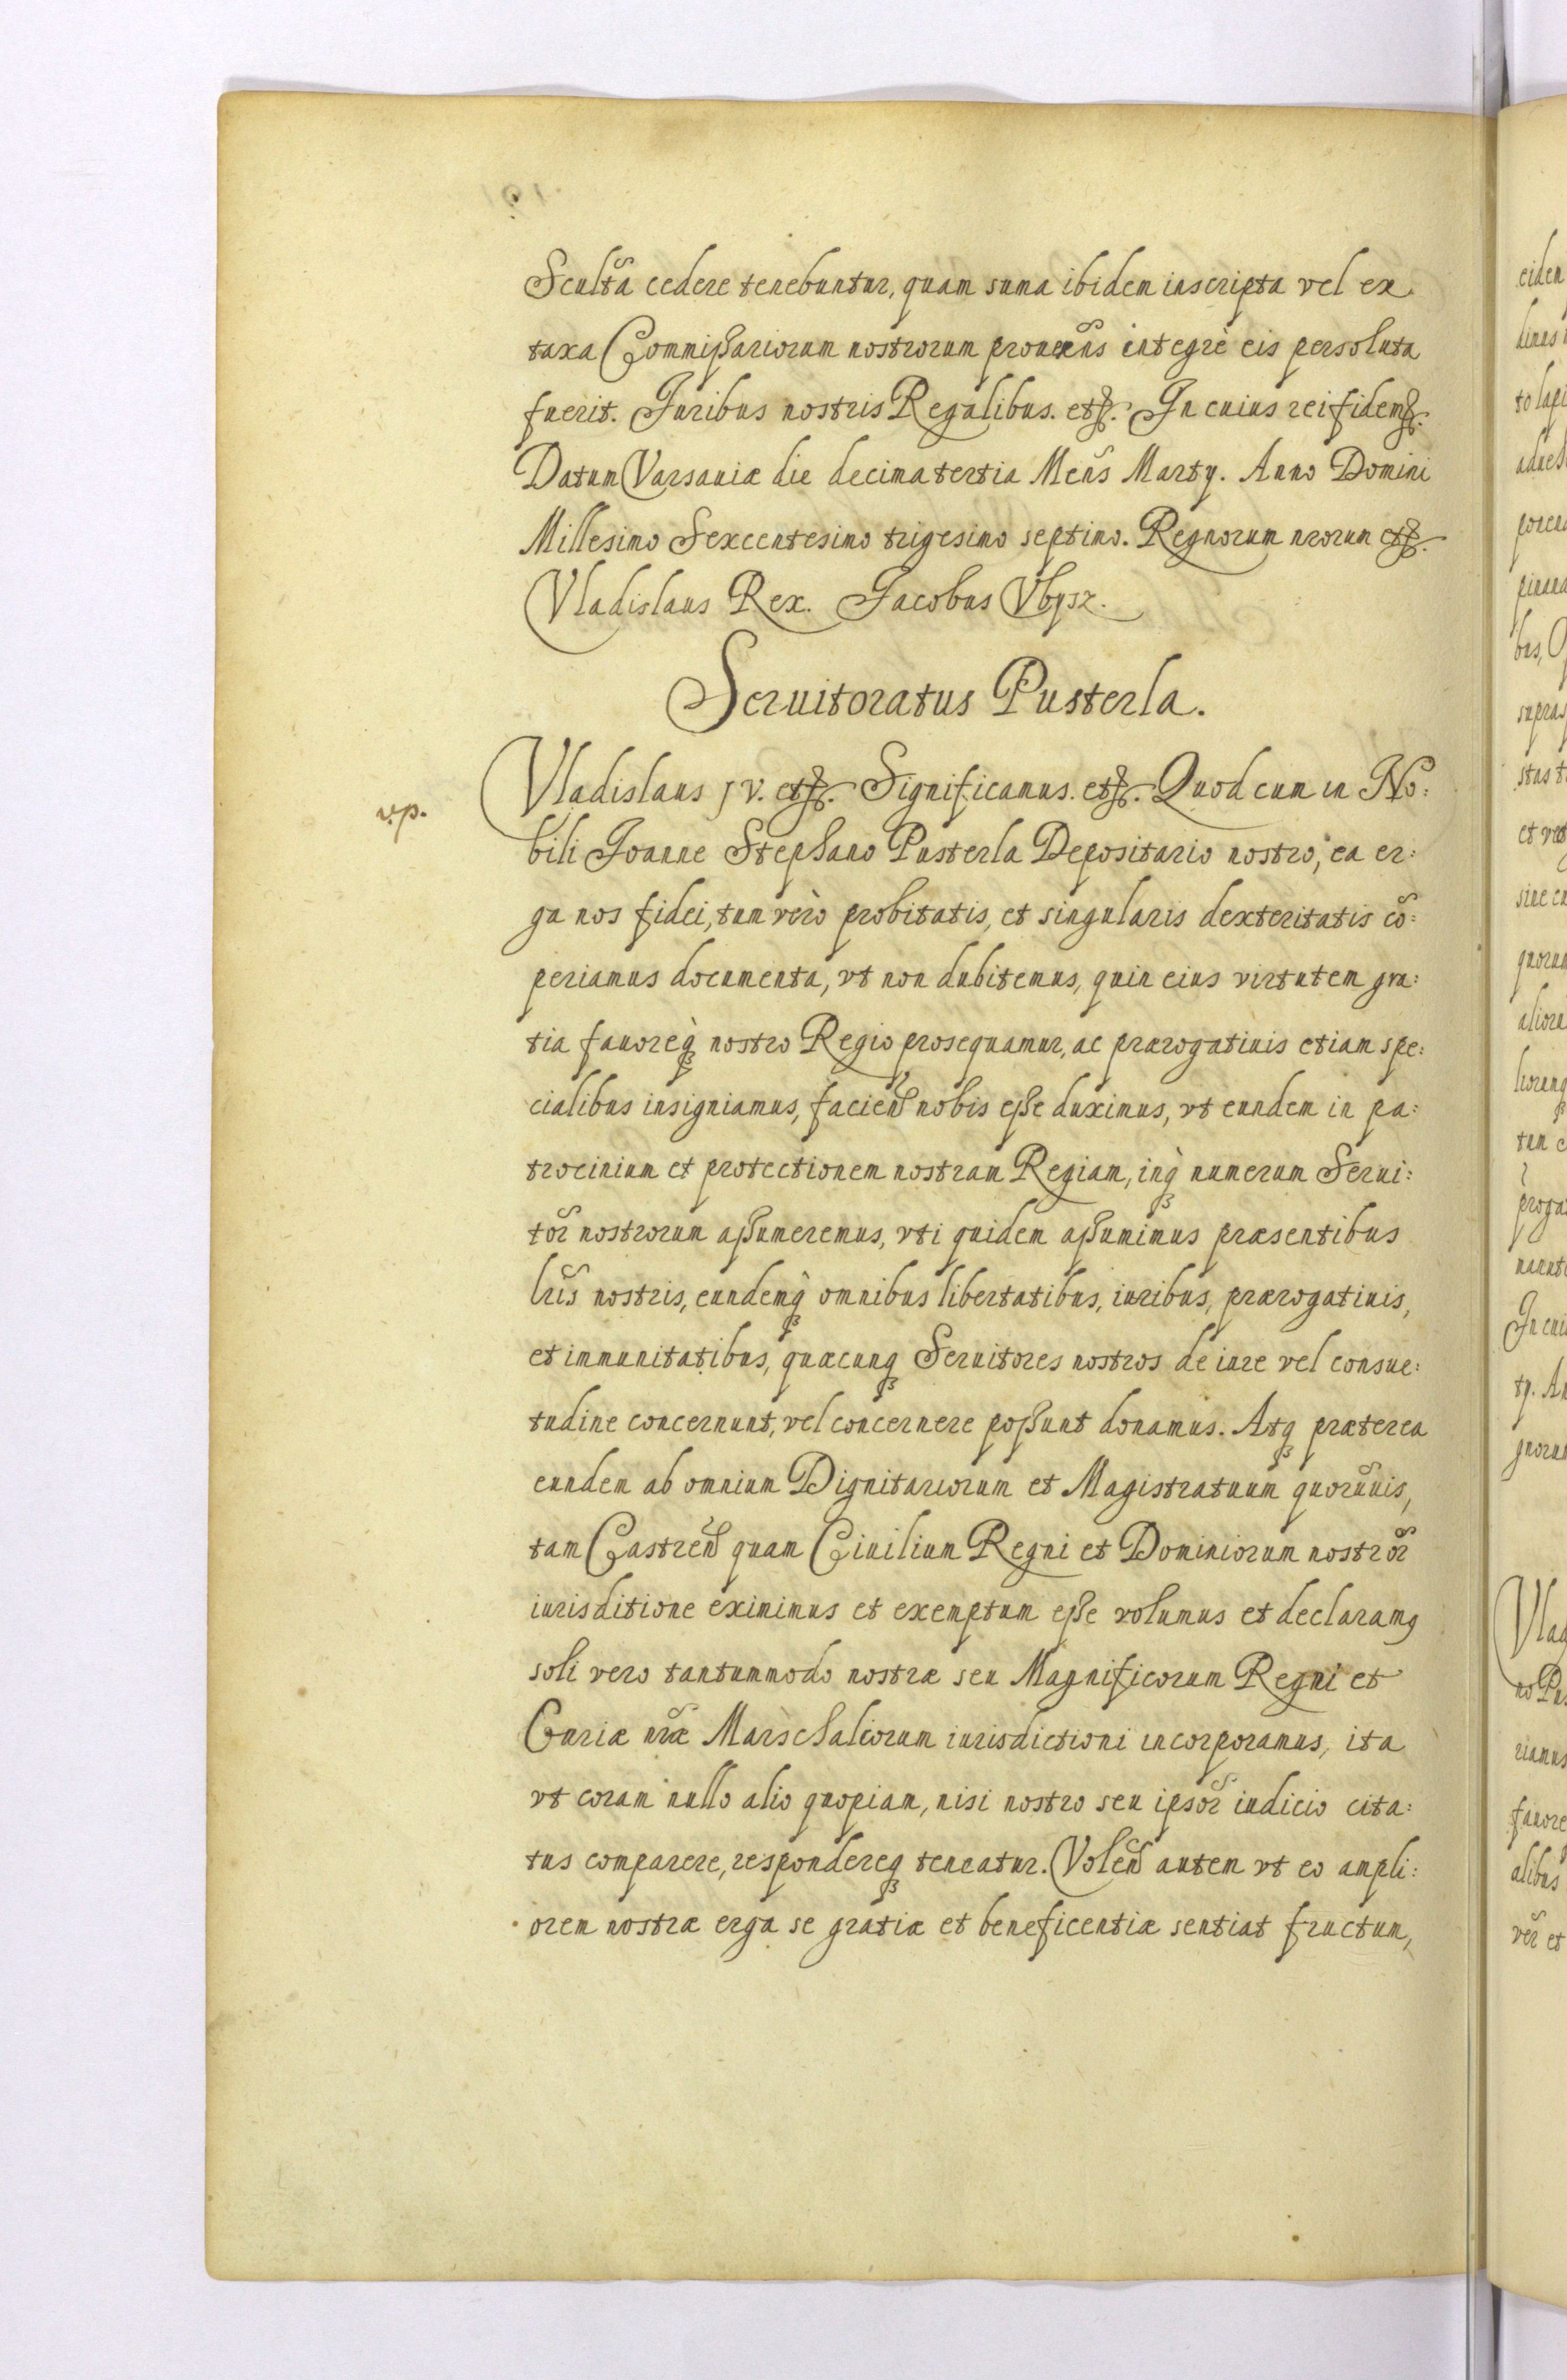 Scultã cedere tenebuntur, quam suma ibidem inscripta vel ex
taxa Commissariorum nostrorum integrè eis persoluta
fuerit. Juribus nostris Regalibus. etc. In cuius rei fidem etc.
Datum Varsauiæ die decima tertia Mens̃ Martij. Anno Domini
Millesimo Sexcentesimo trigesimo septimo. Regnorum nrorum etc.
Vladislaus Rex. Jacobus Vbysz.
Seruitoratus Pusterla.
v.p.
Vladislaus IV. etc. Significamus. etc. Quod cum in No:
bili Joanne Stephano Pusterla Depositario nostro, ea er:
ga nos fidei, tum verò probitatis, et singularis dexteritatis cõ:
periamus documenta, vt non dubitemus, quin eius virtutem gra:
tia fauoreq̀ nostro Regio prosequamur, ac prærogatiuis etiam spe:
cialibus insigniamus, facieñd nobis esse duximus, vt eundem in pa:
trocinium et protectionem nostram Regiam, inq̀ numerum Serui:
tor̃ nostrorum assumeremus, vti quidem assumimus præsentibus
lrĩs nostris, eundemq̀ omnibus libertatibus, iuribus, prærogatiuis,
et immunitatibus, quæcunq Seruitores nostros de iure vel consue:
tudine concernunt, vel concernere possunt donamus. Atq præterea
eundem ab omnium Dignitariorum et Magistratuum quorũuis,
tam Castreñ quam Ciuilium Regni et Dominiorum nostror̃
iurisditione eximimus et exemptum esse volumus et declaramq
soli vero tantummodo nostræ seu Magnificorum Regni et
Curiæ nr̃æ Marschalcorum iurisdictioni incorporamus, ita
vt coram nullo alio quopiam, nisi nostro seu ipsor̃ iudicio cita:
tus comparere, respondereq teneatur. Voleñ autem vt eo ampli:
orem nostræ erga se gratiæ et beneficentiæ sentiat fructum,